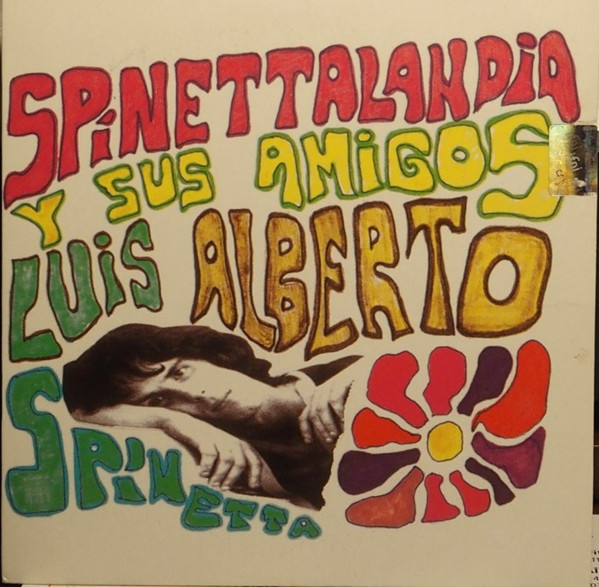 SPÍNETTALANDiA
Y SUS AMiGOS
LUiS ALBERTO
SPÍNETTA